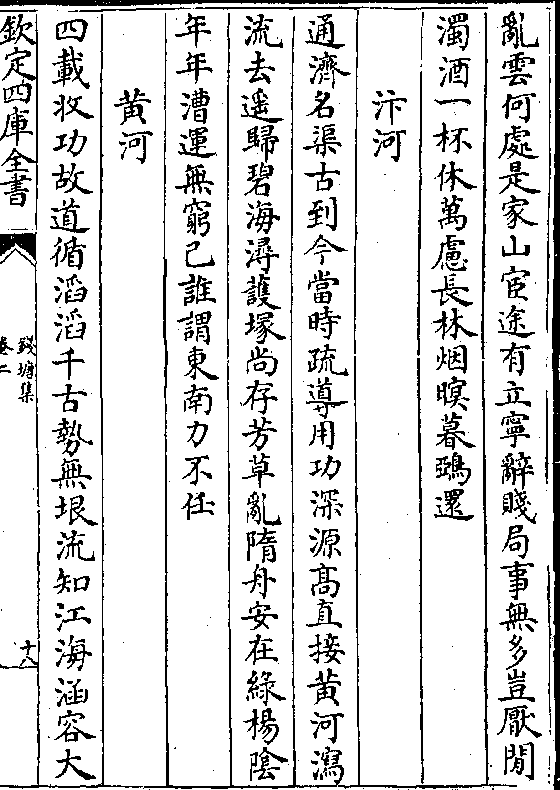 亂雲何處是家山宦途有立寧辭賤局事無多豈厭閒
濁酒一杯休萬慮長林烟暝暮鵶還
汴河
通濟名渠古到今當時疏導用功深源髙直接黄河瀉
流去遥歸碧海潯護塚尚存芳草亂隋舟安在緑楊陰
年年漕運無窮已誰謂東南力不任
黄河
四載收功故道循滔滔千古勢無垠流知江海涵容大
欽定四庫全書
錢塘集
卷二
十八